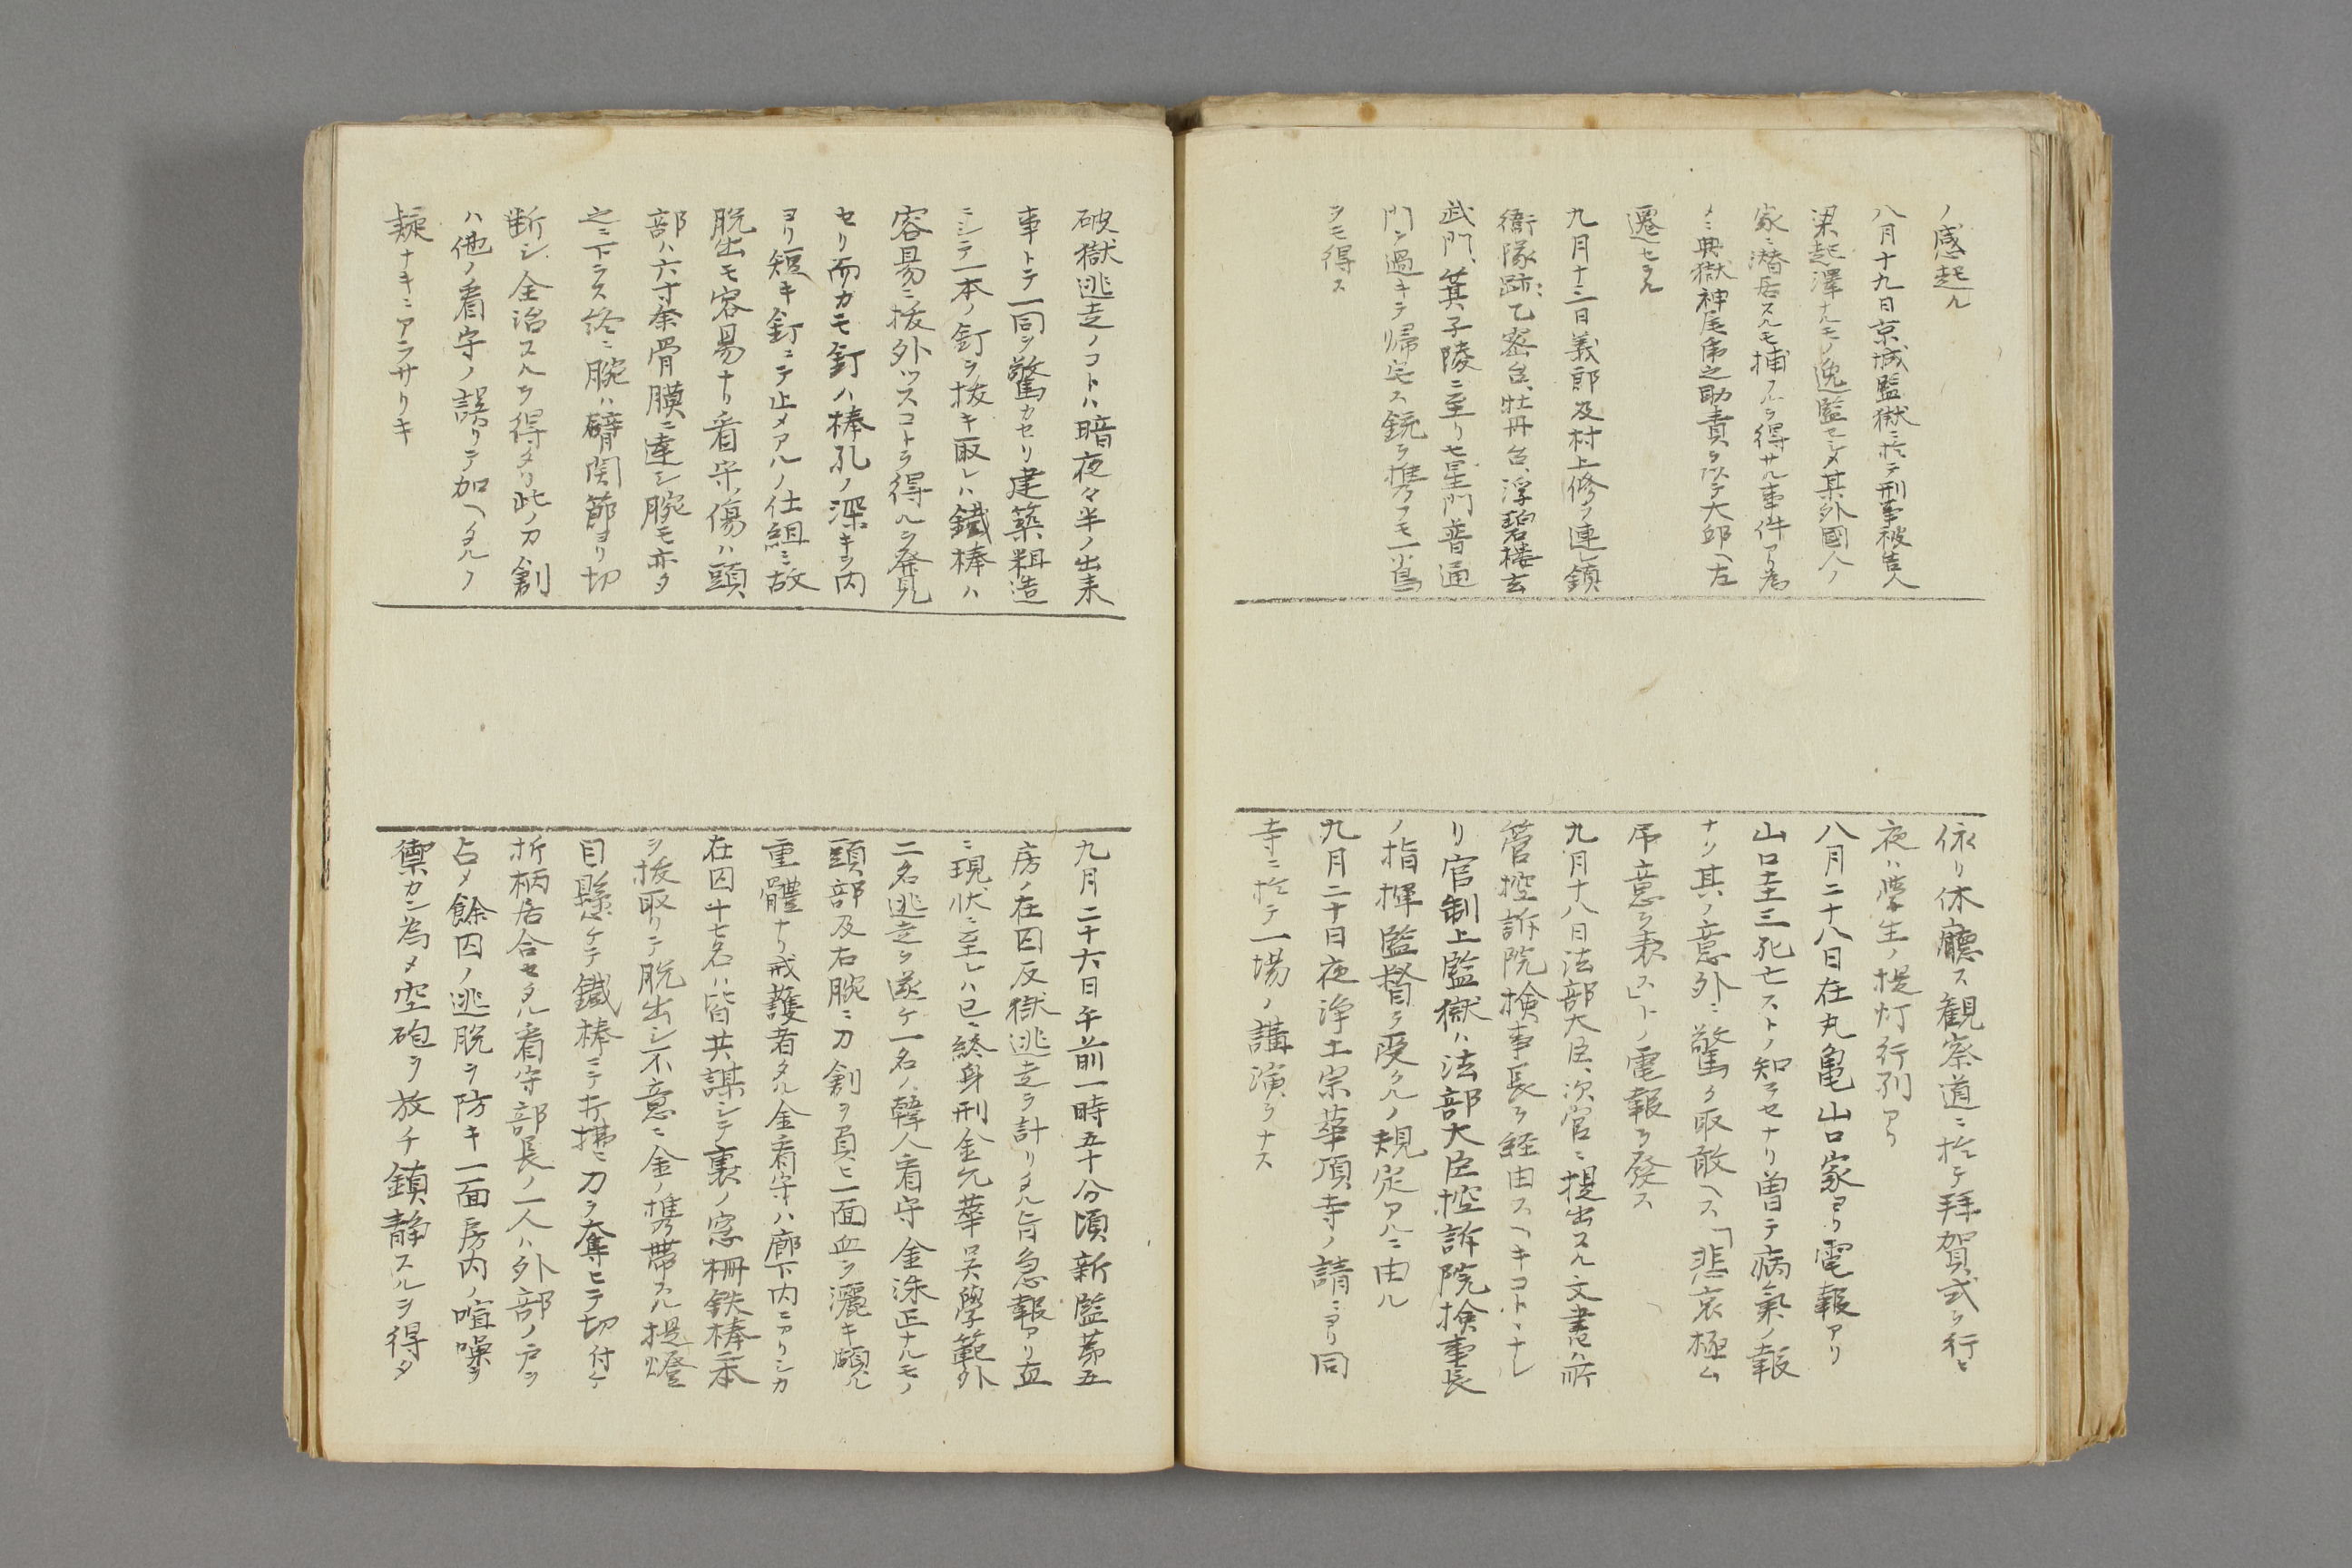 ノ感起ル
八月十九日京城監獄ニ於テ刑事被告人
梁起澤ナルモノ逸監セシメ某外國人ノ
家ニ潜居スルモ捕フルヲ得サル事件アリ為
メニ典獄神尾虎之助責ヲ以テ大邱ヘ左
遷セラル
九月十三日義郎及村上修ヲ連レ鎮
衛隊跡、乙密台、牡丹台、浮碧楼、玄
武門、箕子陵ニ至リ七星門普通
門ヲ過キテ帰宅ス銃ヲ携フモ一鳥
ヲモ得ス
依リ休廳ス観察道ニ於テ拜賀式ヲ行ヒ
夜ハ學生ノ提灯行列アリ
八月二十八日在丸亀山口家ヨリ電報アリ
山口圭三死亡ストノ知ラセナリ曽テ病氣ノ報
ナリ其ノ意外ニ驚ク取敢ヘス「悲哀極ム
吊意ヲ表ス」トノ電報ヲ發ス
九月十八日法部大臣、次官ニ提出スル文書ハ所
管控訴院検事長ヲ経由スヘキコトヽナレ
リ官制上監獄ハ法部大臣控訴院検事長
ノ指揮監督ヲ受クルノ規定アルニ由ル
九月二十日夜浄土宗華頂寺ノ請ニヨリ同
寺ニ於テ一場ノ講演ヲナス
破獄逃走ノコトハ暗夜々半ノ出来
事トテ一同ヲ驚カセリ建築粗造
ニシテ一本ノ釘ヲ抜キ取レハ鐵棒ハ
容易ニ抜外ッスコトヲ得ルヲ発見
セリ而カモ釘ハ棒孔ノ深キヲ内
ヨリ短キ釘ニテ止メアルノ仕組ニ故
脱出モ容易ナリ看守ノ傷ハ頭
部ハ六寸余骨膜ニ達シ腕モ亦タ
之ニ下ラス終ニ腕ハ臂関節ヨリ切
断シ全治スルヲ得タリ此ノ刀創
ハ他ノ看守ノ誤リテ加ヘタルノ
疑ナキニアラサリキ
九月二十六日午前一時五十分頃新監第五
房ノ在囚反獄逃走ヲ計リタル旨急報アリ直
ニ現状ニ至レハ已ニ終身刑金元華呉學範外
二名逃走ヲ遂ケ一名ノ韓人看守金洙正ナルモノ
頭部及右腕ニ刀創ヲ負ヒ一面血ヲ灑キ頗ル
重體ナリ戒護者タル金看守ハ廊下内ニアリシカ
在囚十七名ハ皆共謀シテ裏ノ窓柵鉄棒一本
ヲ抜取リテ脱出シ不意ニ金ノ携帯スル提燈
目懸ケテ鐵棒ニテ打拂ニ刀ヲ奪ヒテ切付ケ
折柄居合セタル看守部長ノ一人ハ外部ノ戸ヲ
占メ餘囚ノ逃脱ヲ防キ一面房内ノ喧噪ヲ
禦カン為メ空砲ヲ放チ鎮静スルヲ得タ